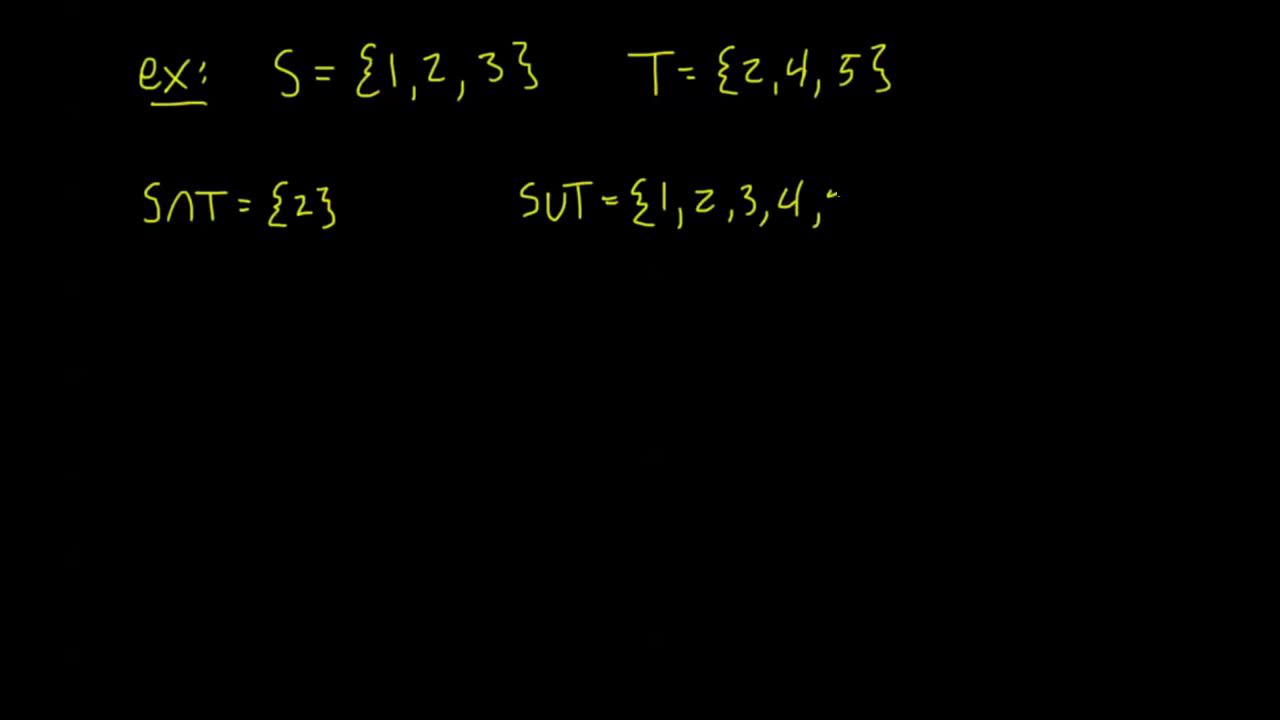 ex: S = {1, 2, 3} T = {2, 4, 5}
S∩T = {2} S∪T = {1, 2, 3, 4,